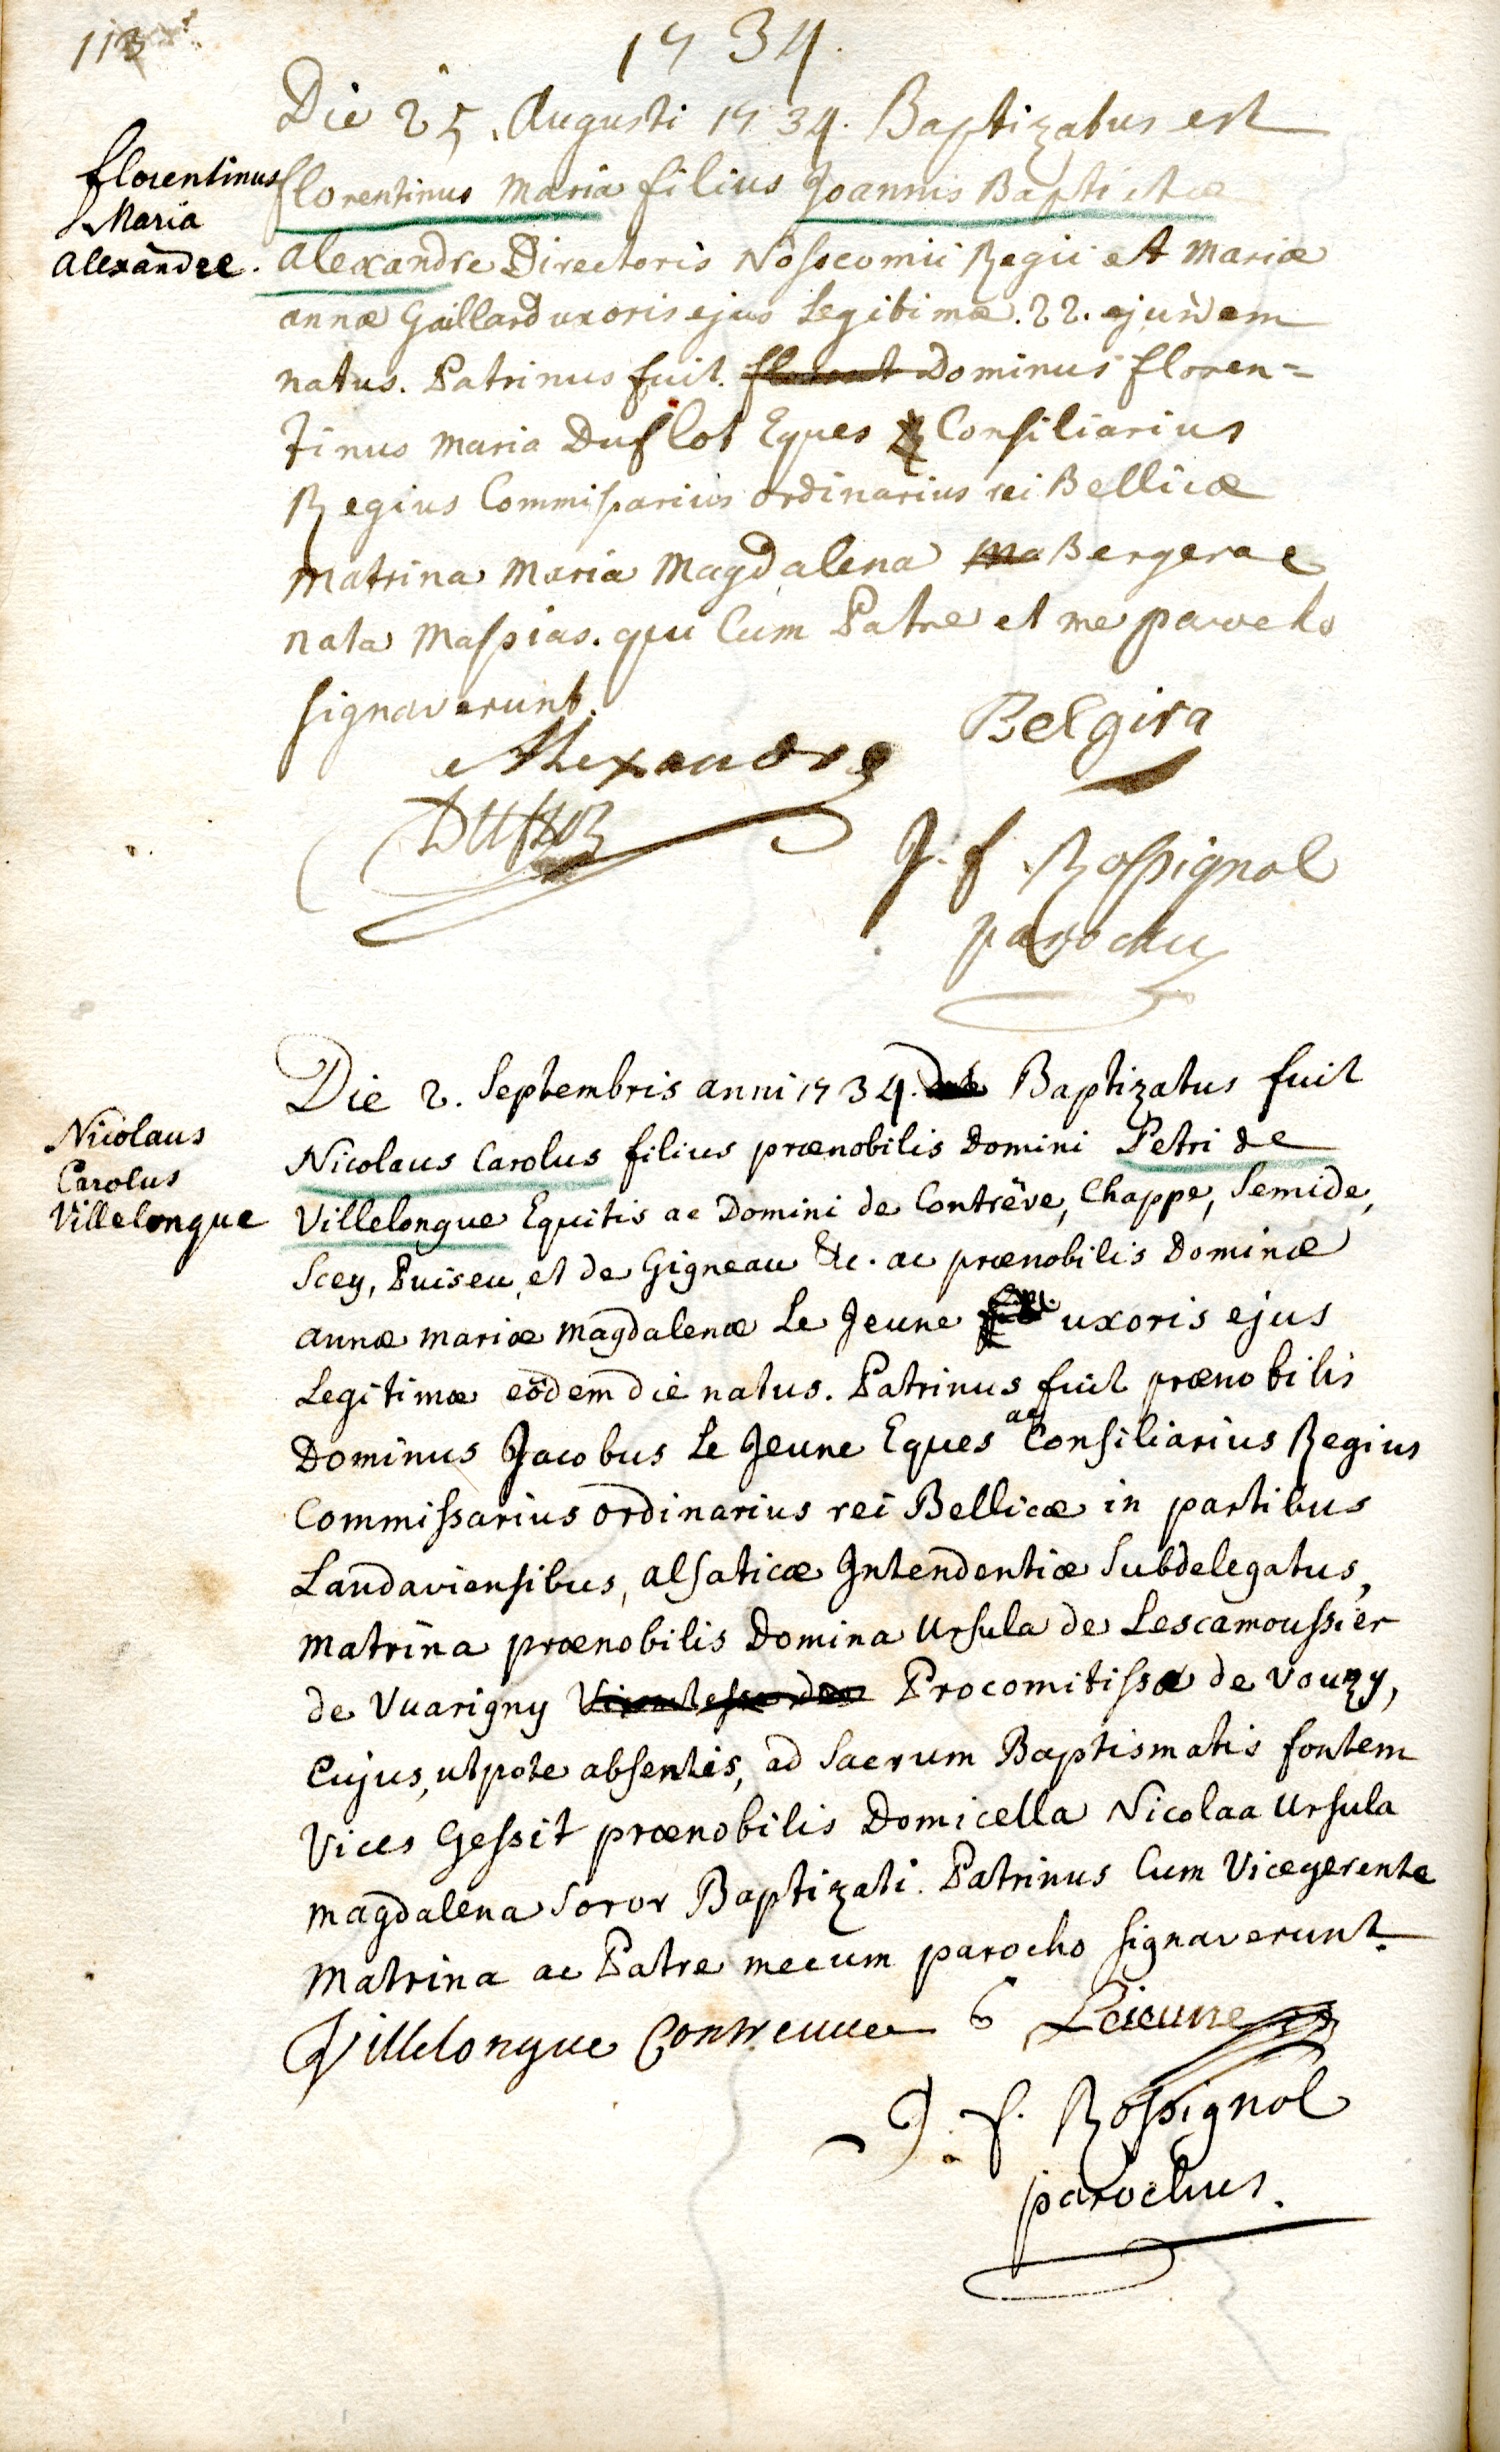 113
1734.
Die 25. Augusti 1734. Baptizatus est
florentinus
Maria
Alexandre.
florentinus Maria filius Joannis Baptistæ
Alexandre Directoris Nosocomii Regii et Mariæ
annæ Gaillard uxoris ejus Legitimæ. 22. ejusdem
natus. Patrinus fuit. Dominus floren=
tinus Maria Duflot Eques Consiliarius
Regius Commissarius ordinarius rei Bellicæ
Matrina Maria Magdalena Ma Bergerac
nata Massias. qui Cum Patre et me parocho
signaverunt.
Belgira
Alexandre
J. f. Rossignol
parochus
Die 2. Septembris anni 1734. Baptizatus fuit
Nicolaus
Carolus
Villelongue
Nicolaus Carolus filius prænobilis Domini Petri de
Villelongue Equitis ac Domini de Contrëve, Chappe, Semide,
Scey, Puiseu, et de Gigneau &c. ac prænobilis Dominæ
annæ mariæ magdalenæ Le Jeune uxoris ejus
Legitimæ eodem die natus. Patrinus fuit prænobilis
Dominus Jacobus Le Jeune Eques ac Consiliarius Regius
Commissarius ordinarius rei Bellicæ in partibus
Landaviensibus, alsaticæ Intendentiæ Subdelegatus,
Matrina prænobilis Domina Ursula de Lescamoussier
de Vuarigny Procomitissa de Vouzy,
Cujus, utpote absentis, ad Sacrum Baptismatis fontem
Vices Gessit prænobilis Domicella Nicolaa Ursula
Magdalena Soror Baptizati. Patrinus Cum Vicegerente
Matrina ac Patre mecum parocho signaverunt.
Villelongue Contreuue Lejeune
J. f. Rossignol
parochus.